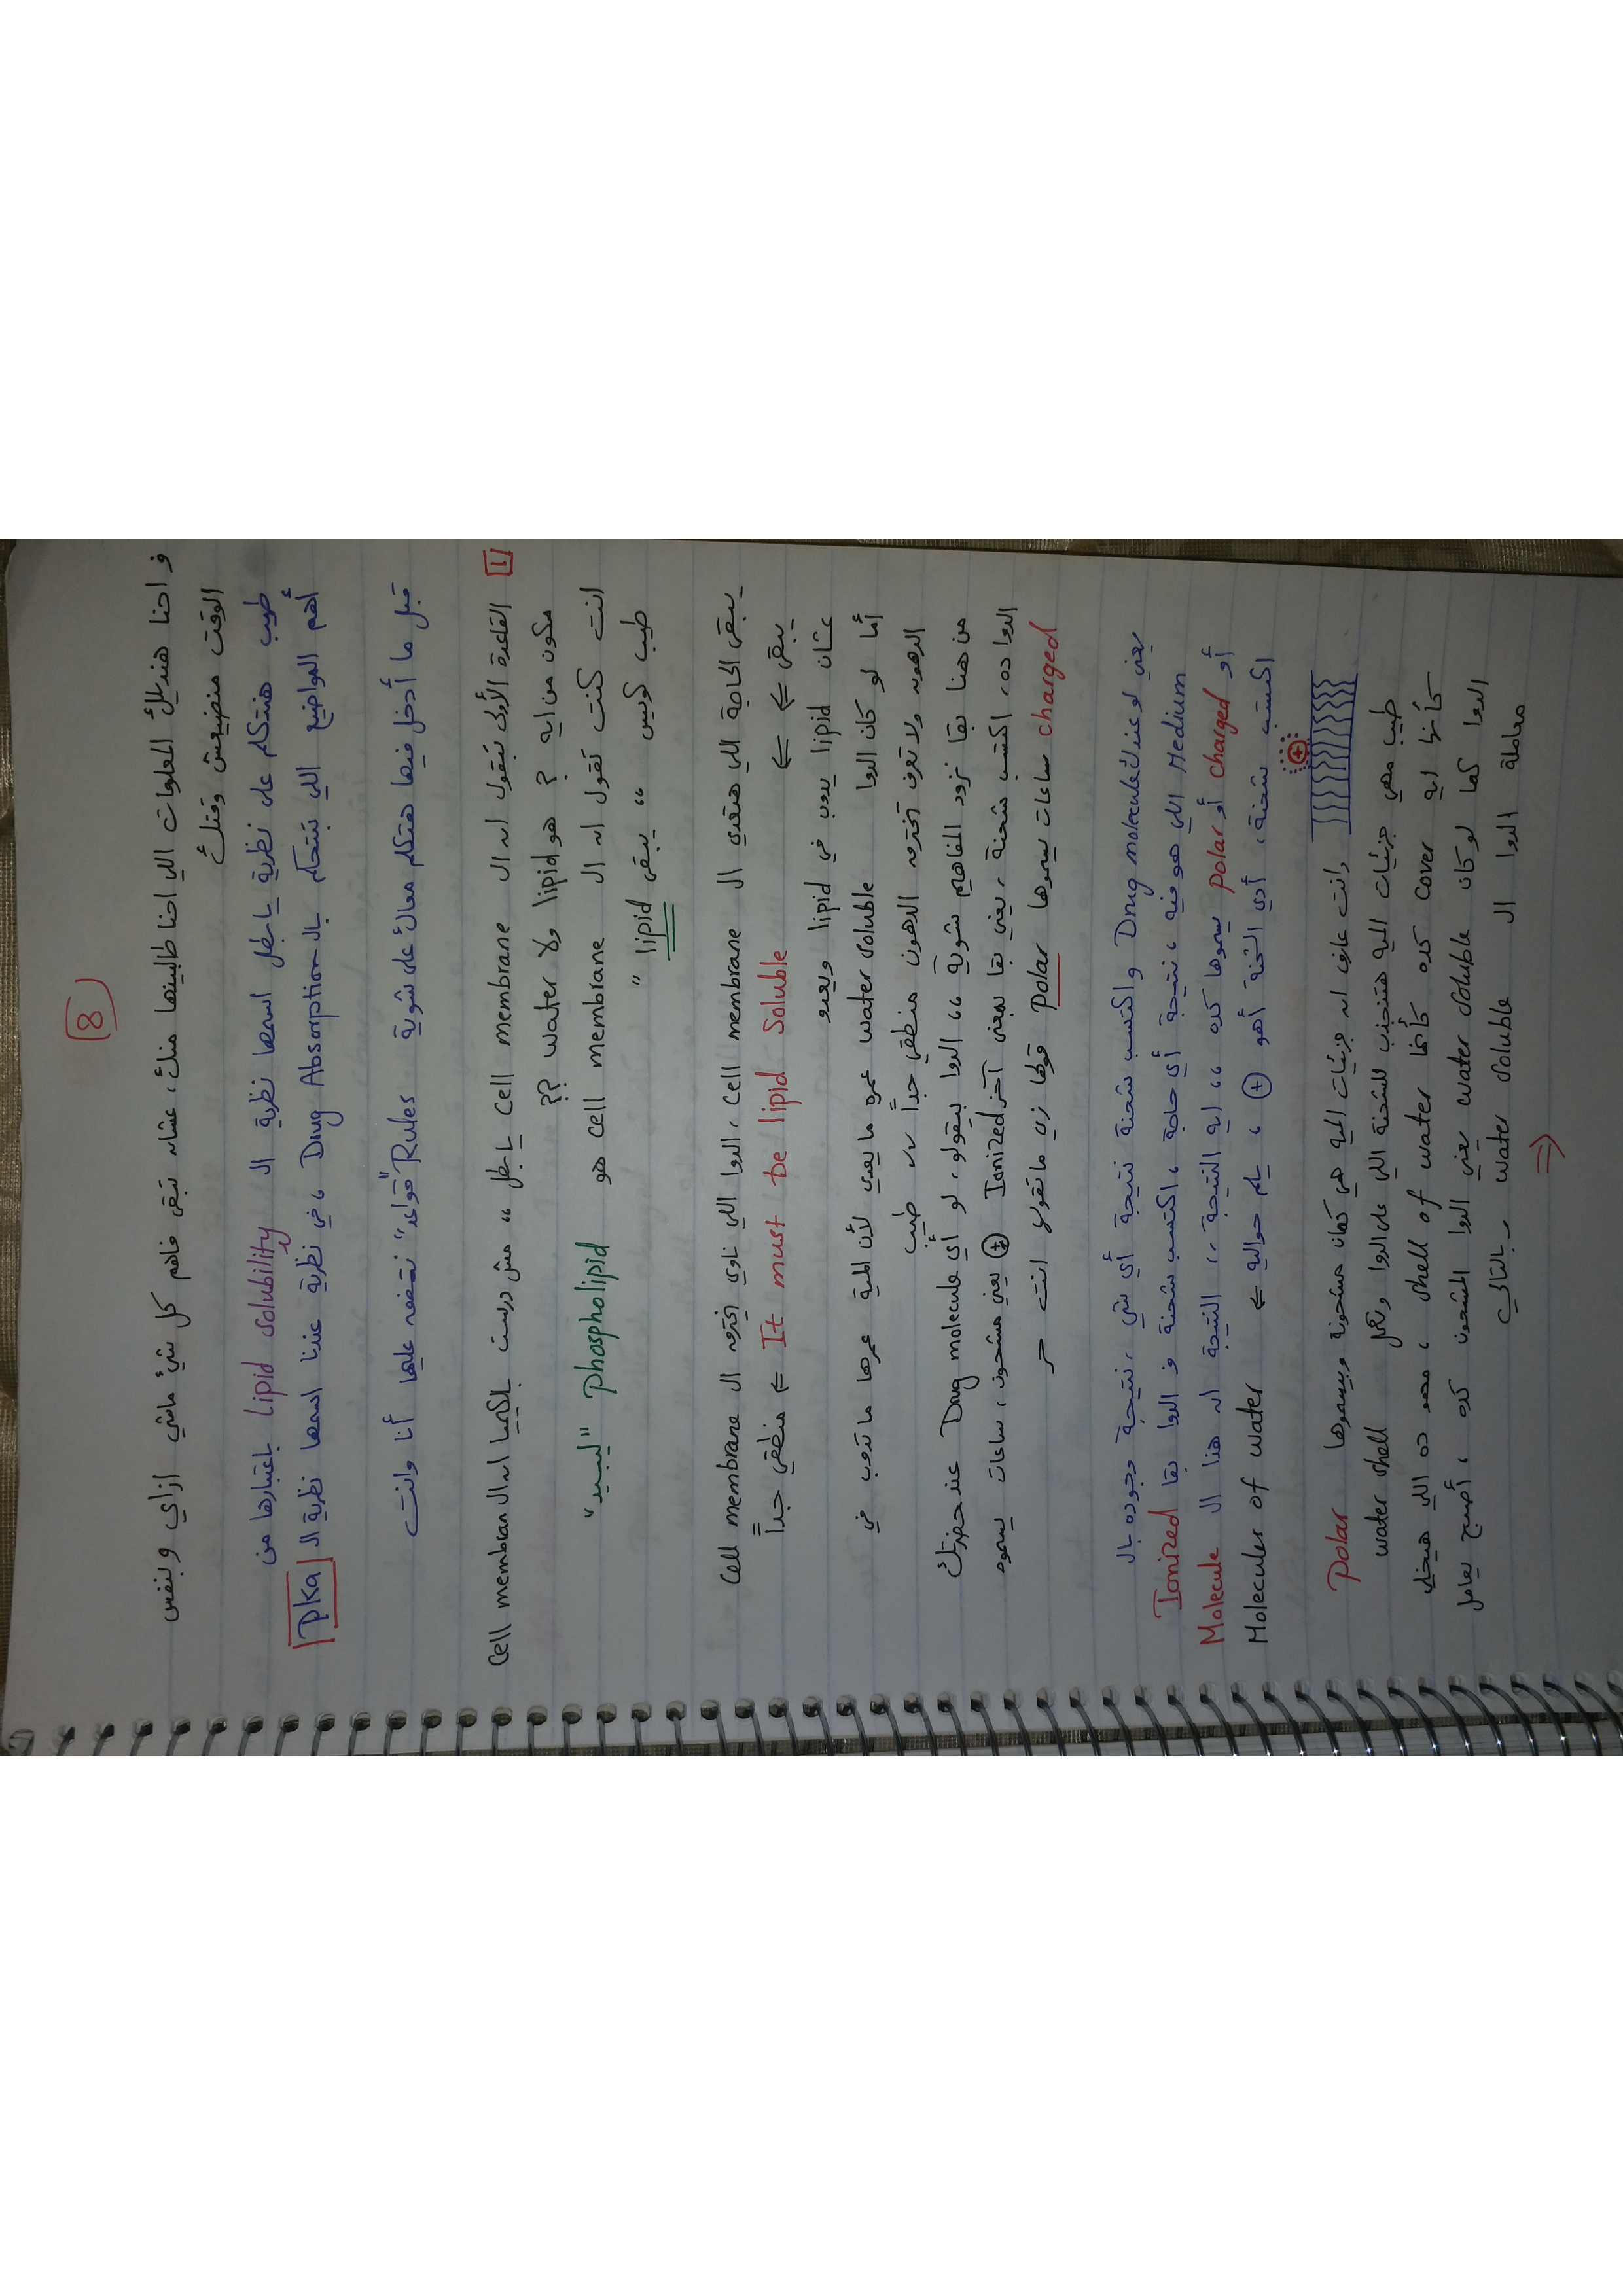 8
و احنا هنديلك المعلومات اللي احنا طالبينها منك، عشان تبقى فاهم كل شئ ماشي ازاي وبنفس
الوقت منضيعش وقتك
طيب هنتكلم على نظرية ياجل اسمها نظرية ال Lipid solubility باعتبارها من
أهم المواضيع اللي بتتحكم بال Drug Absorption ، في نظرية عندنا اسمها نظرية ال Pka
قبل ما أدخل فيها هتكلم معاك على شوية Rules "قواعد" نتفق عليها أنا وانت
1 القاعدة الأولى بتقول ان ال cell membrane ياجل " مش درست بالكيميا ان ال Cell membran
مكون من ايه ? هو lipid ولا water ??
انت كنت تقول ان ال cell membrane هو Phospholipid "ليبيد"
طيب كويس " يبقى lipid "
يبقى الحاجة اللي هتعدي ال cell membrane ، الدوا اللي ناوي يخترق ال Cell membrane
يبقى ⇐ ⇐ It must be lipid soluble ⇐ منطقي جداً
عشان lipid يدوب في lipid ويعدو
أما لو كان الدوا water soluble عمره ما يعدي لأن المية عمرها ما تدوب في
الدهون ولا تعرف تخترق الدهون منطقي جداً ،، طيب
من هنا بقا نزود المفاهيم شوية " الدوا بيتقولو، لو أي Drug molecule عند حضرتك
الدوا ده، اكتسب شحنة، يعني بقا بمعنى آخر Ionized ⊕ يعني مشحون، ساعات يسموه
charged ساعات يسموها Polar قولها زي ما تقولها انت حر
يعني لو عندك Drug molecule واكتسب شحنة نتيجة أي شي، نتيجة وجوده بال
Medium اللي هو فيه، نتيجة أي حاجة، اكتسب شحنة و الدوا بقا Ionized
أو charged أو polar يسموها كده " ايه النتيجة،، النتيجة ان هذا ال Molecule
اكتسب شحنة، أدي الشحنة أهو ⊕ ، يلم حواليه ⇐ Molecules of water
وانت عارف ان جزيئات المية هي كمان مشحونة وبيسموها Polar
طيب مهي جزيئات المية هتنجذب للشحنة اللي على الدوا وتعمل water shell
كأنها ايه cover كده كأنها shell of water ، مهو ده اللي هيخلي
الدوا كما لو كان water soluble يعني الدوا المشحون كده ، أصبح يعامل
معاملة الدوا ال water soluble وبالتالي
⇐